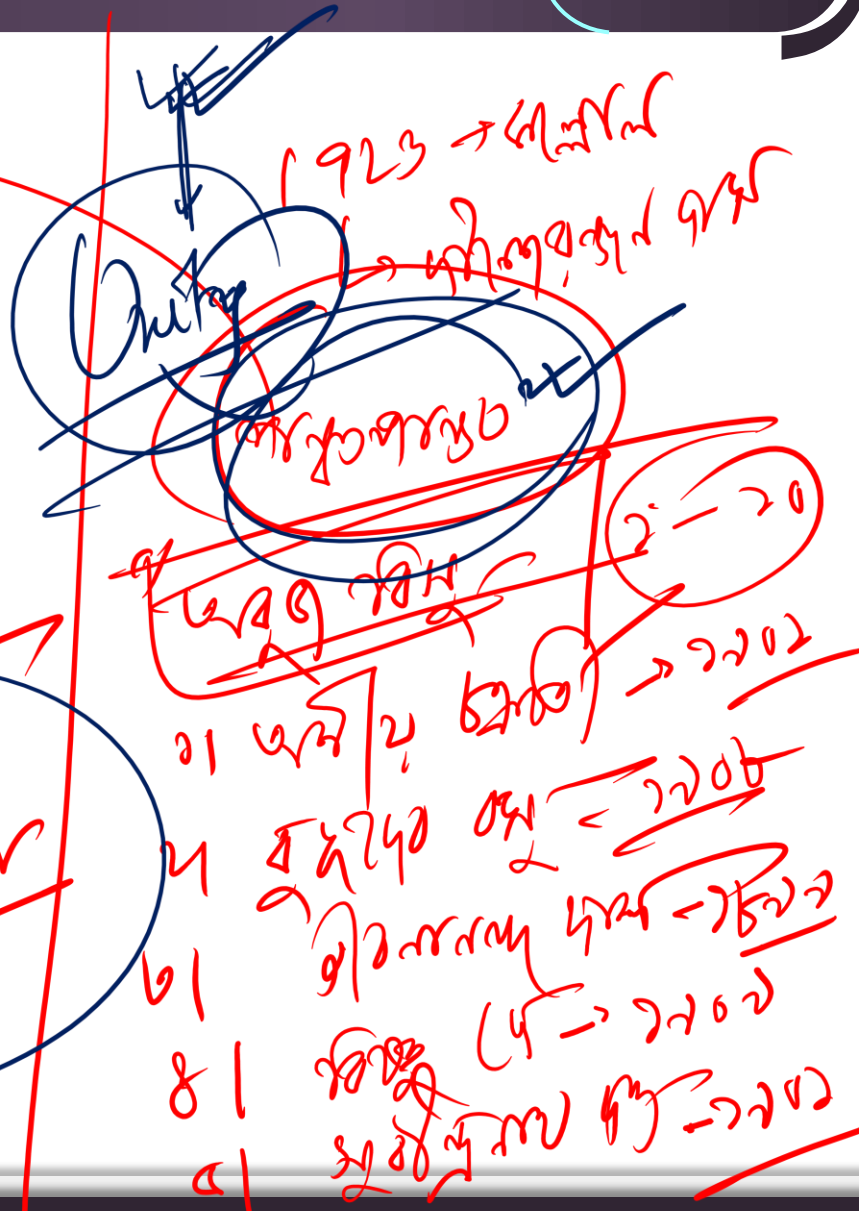 1923 → কল্লোল
→ দীনেশরঞ্জন দাশ
পঞ্চপাণ্ডব
২ - ১০
১। অমিয় চক্রবর্তী → ১৯০১
২। বুদ্ধদেব বসু - ১৯০৮
৩। জীবনানন্দ দাশ - ১৮৯৯
৪। বিষ্ণু দে → ১৯০৯
৫। সুধীন্দ্রনাথ দত্ত - ১৯০১